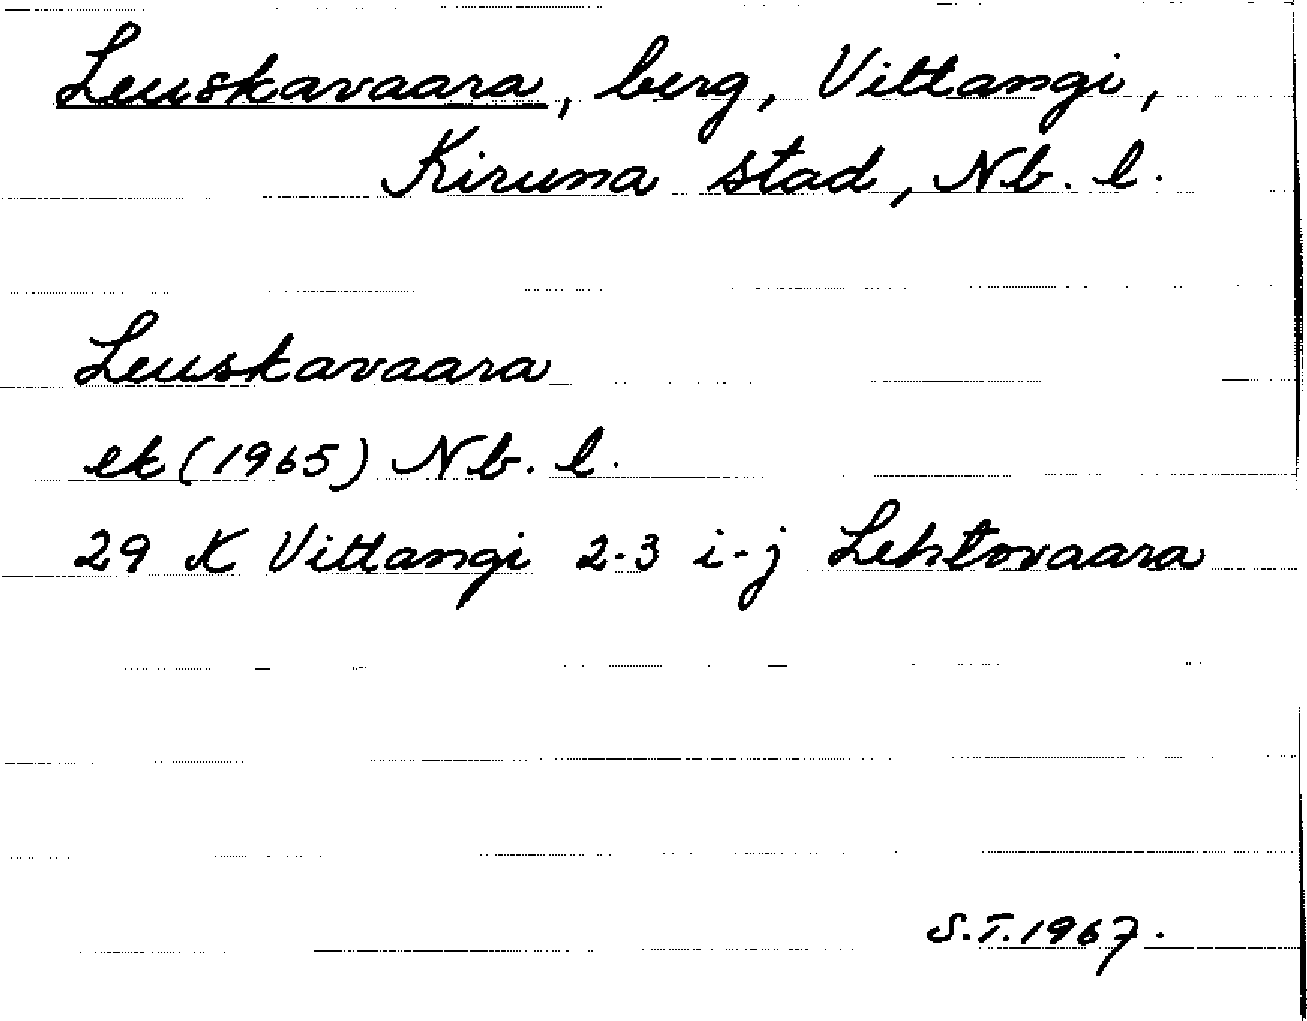 Leuskavaara, berg, Vittangi,
Kiruna stad, Nb. l.
Leuskavaara
ek (1965) Nb. l.
29 K Vittangi 2-3 i-j Lehtovaara
S.T. 1967.